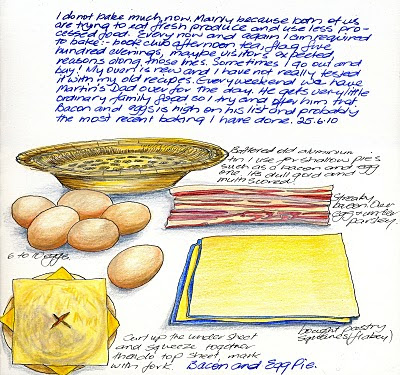 I do not bake much now. Mainly because both of us
are trying to eat fresh produce and use less pro-
cessed food. Every now and again I am required
to bake:- book club afternoon tea, flag five
hundred evenings, maybe visitors expected
reasons along those lines. Sometimes I go out and
buy! My oven is new and I have not really tested
it with my old recipes. Every weekend we have
Martin's Dad over for the day. He gets very little
ordinary family food so I try and offer him that.
Bacon and eggs is high on his list and probably
the most recent baking I have done. 25.6.10
Battered old aluminium
tin I use for shallow pies
such as a bacon and egg
one. Its dull gold and
much scored!
Streaky
bacon. Over
egg + winter
parsley.
6 to 10 eggs.
bought pastry
squares (flakey)
Curl up the under sheet
and squeeze together
then do top sheet, mark
with fork. Bacon and Egg Pie.